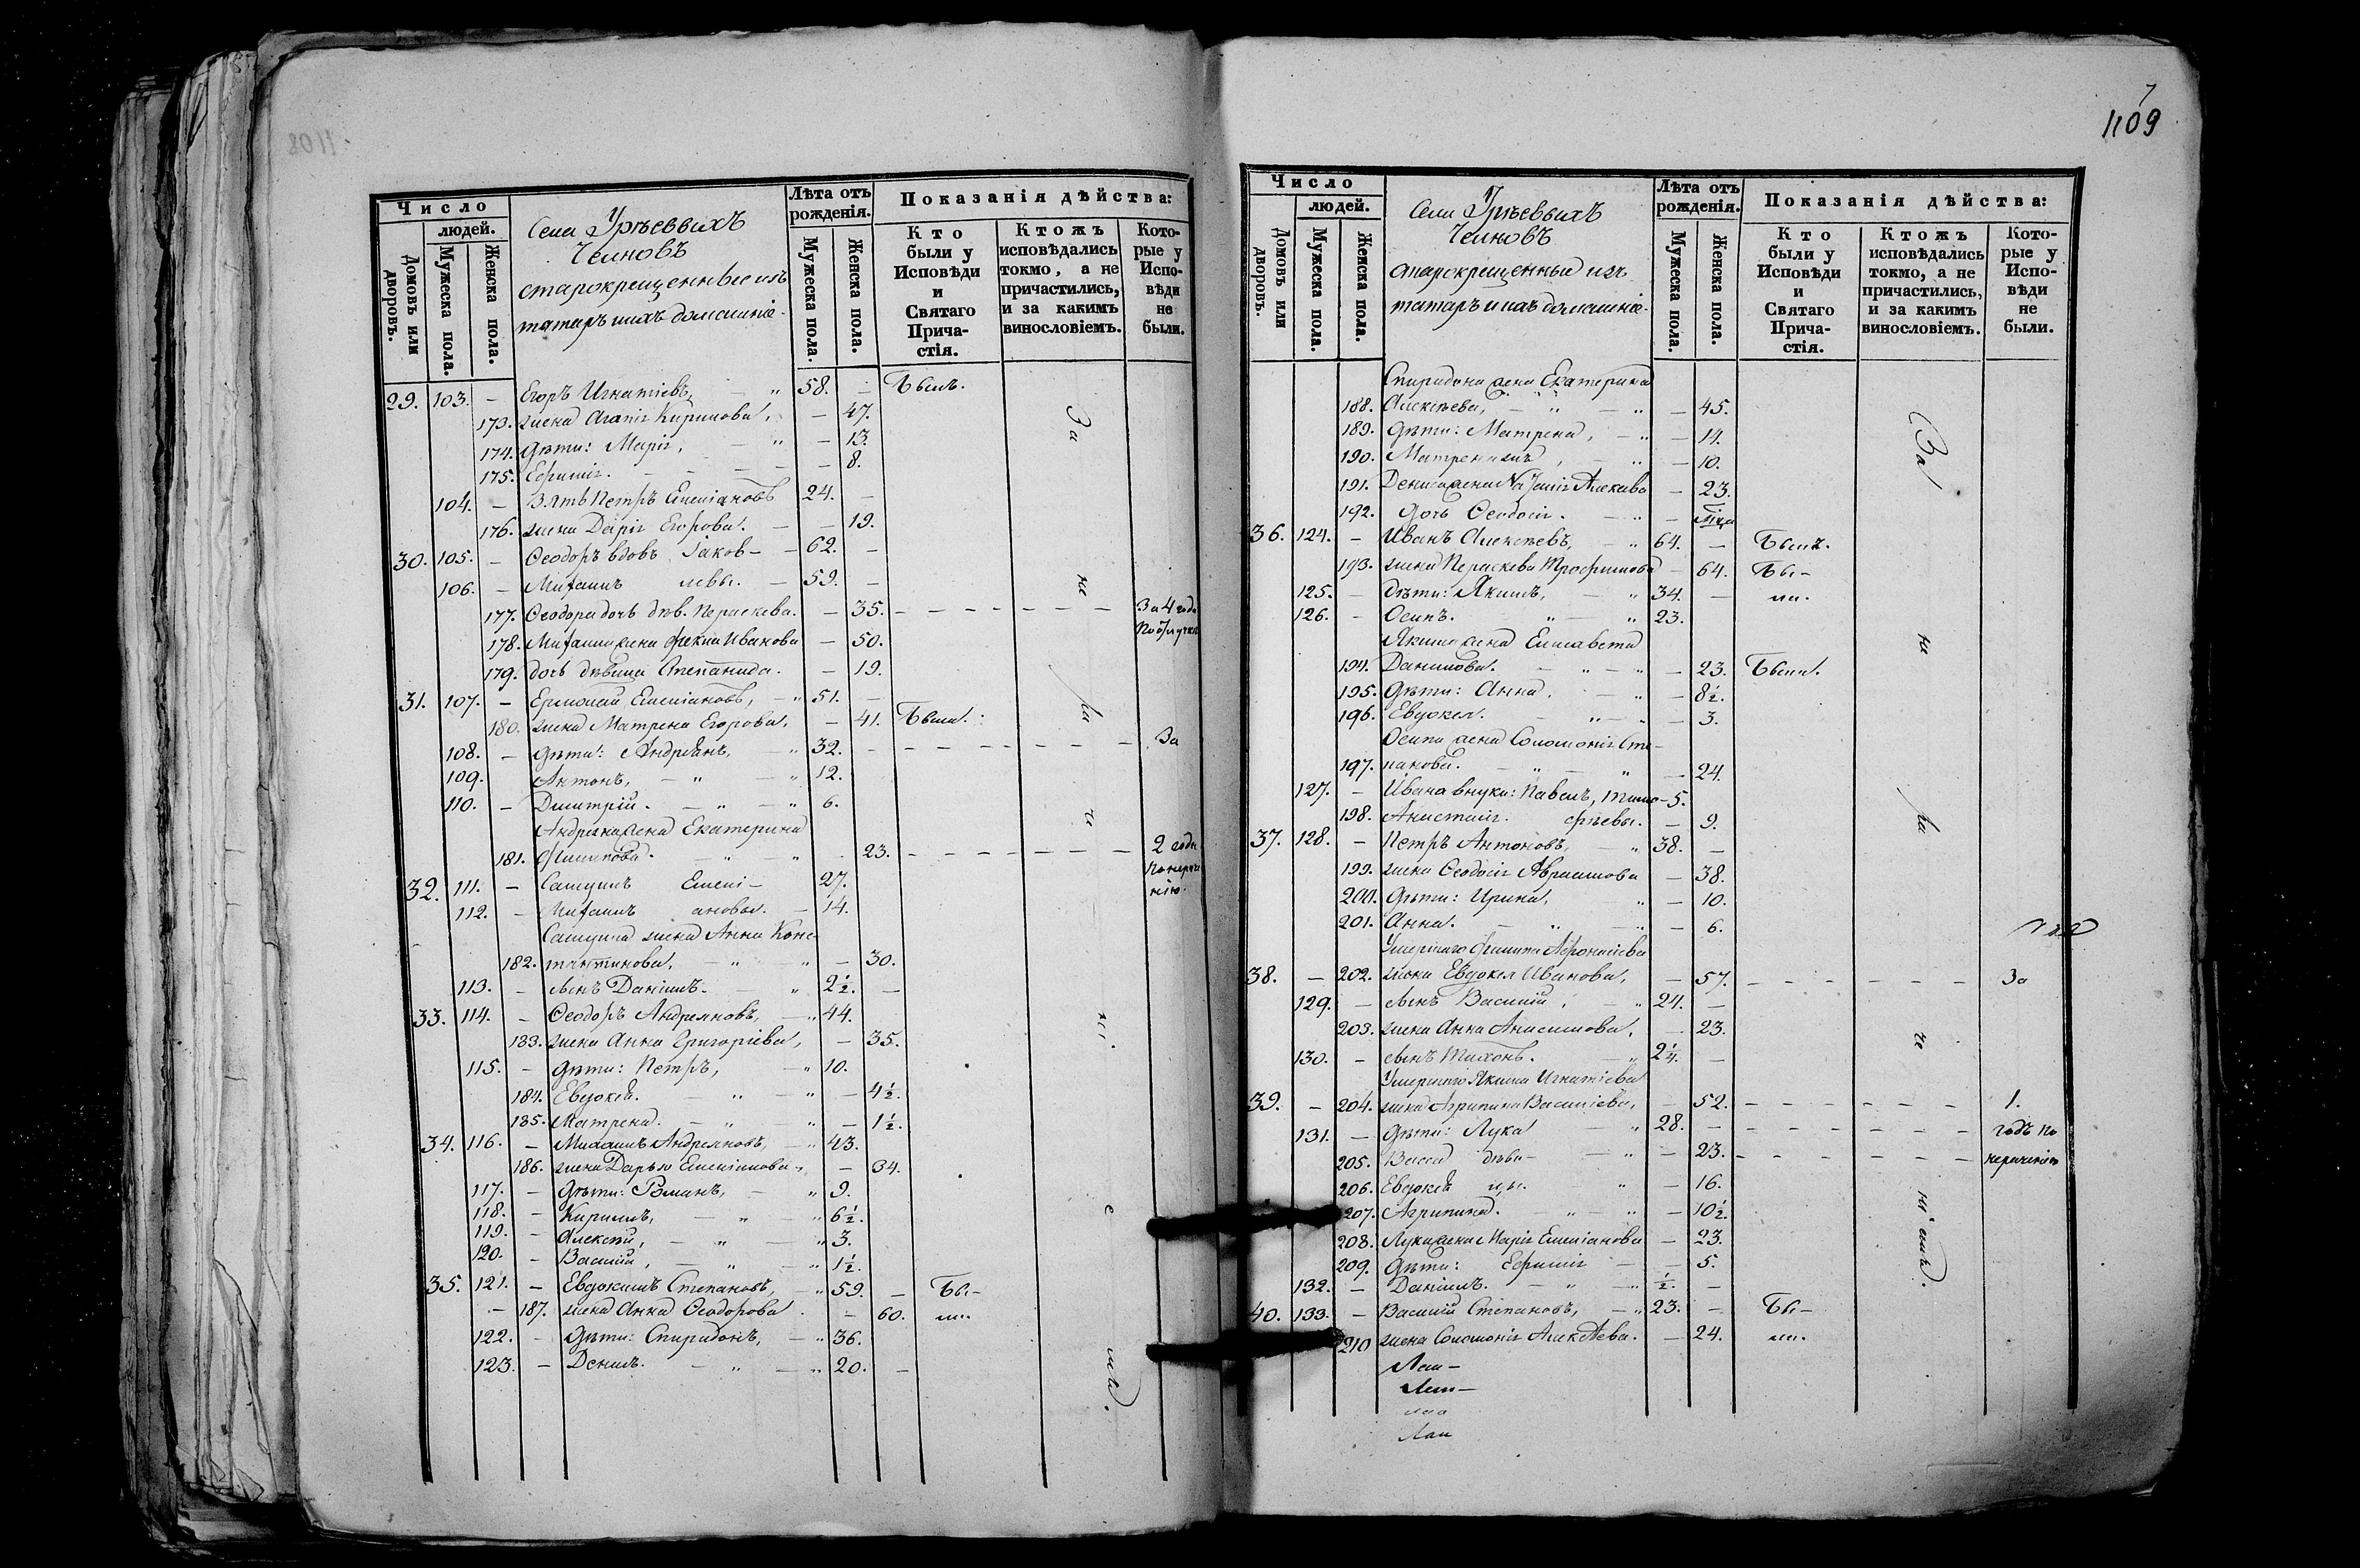 1109
Число
людей.
Домовъ или дворовъ.
Мужеска пола.
Женска пола.
Села Урѣевыхъ
Челновъ
старокрещенные изъ
татаръ и ихъ домашніе.
Лѣта отъ рожденія.
Мужеска пола.
Женска пола.
Показанія дѣйства:
Кто были у Исповѣди и Святаго Причастія.
Ктожъ исповѣдались токмо, а не причастились, и за какимъ винословіемъ.
Которые у Исповѣди не были.
29. 103. – Егоръ Игнатіевъ, „ 58. – Былъ.
173. жена Агапія Кирилова, – 47.
174. дѣти: Марія, „ – 13.
175. Евфимія. – 8.
104. – Зять Петръ Емеліановъ 24. –
176. жена Дарія Егорова. – – 19.
30. 105. – Ѳеодоръ вдовъ Іаков– – 62. –
106. – Михаилъ левы. – 59. –
177. Ѳеодора дочь дѣв. Параскева. – 35. – – – – – – – За 4 года
178. Михаила жена Фекла Иванова – 50.
179. дочь дѣвица Степанида. – 19.
31. 107. – Ермолай Емеліановъ, – „ 51. –
180. жена Матрена Егорова, – 41. Была.
108. – дѣти: Андреянъ, – „ 32. – – – – – – – – За
109. Антонъ, – „ – „ 12.
110. – Димитрій. – „ – „ 6.
Андреяна жена Екатерина
181. Филипова. – „ „ 23. – – – – – – – 2 года
32. 111. – Самуилъ Емелі– 27.
112. – Михаилъ ановы. – 14.
Самуила жена Анна Конс–
182. тантинова, – „ „ – 30.
113. – сынъ Даніилъ. – „ 2½. –
33. 114. – Ѳеодоръ Андреяновъ, – „ 44.
183. жена Анна Григоріева, – 35.
115. – дѣти: Петръ, – „ 10.
184. Евдокія. – „ – „ – 4½.
185. Матрена. – „ – „ – 1½.
34. 116. – Михаилъ Андреяновъ, „ 43.
186. жена Дарья Емеліанова. „ – 34.
117. – дѣти: Романъ, – „ 9.
118. – Кирилъ, – „ – „ 6½.
119. – Алексѣй, – „ – „ 3.
120. – Василій, – „ – „ 1½.
35. 121. – Евдокимъ Степановъ, – „ 59. – Бы–
– 187. жена Анна Ѳеодорова – 60. ли.
122. – дѣти: Спиридонъ, – „ 36.
123. – Денисъ. – „ – „ 20. –
Число
людей.
Домовъ или дворовъ.
Мужеска пола.
Женска пола.
Села Урѣевыхъ
Челновъ
старокрещенные изъ
татаръ и ихъ домашніе.
Лѣта отъ рожденія.
Мужеска пола.
Женска пола.
Показанія дѣйства:
Кто были у Исповѣди и Святаго Причастія.
Ктожъ исповѣдались токмо, а не причастились, и за какимъ винословіемъ.
Которые у Исповѣди не были.
Спиридона жена Екатерина
188. Алексѣева, – „ – „ – 45.
189. дѣти: Матрена, – „ – 14.
190. – „ – 10.
191. Дениса жена – 23.
192. дочь Ѳеодосія. – „ –
36. 124. – Иванъ Алексѣевъ, – „ 64. – Былъ.
193. жена Параскева Трофимова – 64. Бы–
125. – дѣти: Якимъ, – „ 34. – ли.
126. – Осипъ. „ – „ 23.
Якима жена Елисавета
194. Данилова. – „ – „ – 23. Была.
195. дѣти: Анна, – „ – 8½.
196. Евдокея. – „ – „ – 3.
Осипа жена Соломонія Сте–
197. панова. – „ – „ – 24.
127. – Ивана внуки: Павелъ, Тимо– 5.
198. Анастасія. фѣевы. – 9.
37. 128. – Петръ Антоновъ, – „ 38. –
199. жена Ѳеодосія Авраамова – 38.
200. дѣти: Ирина, „ – 10.
201. Анна. – „ – „ – 6.
Умершаго Филипа Афонасіева
38. – 202. жена Евдокея Иванова, – 57. – – – – – – – За
129. – сынъ Василій, – „ 24. –
203. жена Анна Анисимова, – 23.
130. – сынъ Тихонъ. – „ 2¼. –
Умершаго Якима Игнатіева
39. – 204. жена Агрипина Василіева, – 52. – – – – – – – 1.
131. – дѣти: Лука – „ 28. – – – – – – – годъ по
205. Васса дѣви– – „ – 23. – – – – – – – нераченію
206. Евдокія цы. – „ – 16.
207. Агрипина. – „ – „ – 10½.
208. Луки жена Марія Емеліанова – 23.
209. дѣти: Евфимія – – 5.
132. – Даніилъ. – „ – „ ½. –
40. 133. – Василій Степановъ, – „ 23. – Бы–
210 жена Соломонія Алексѣева. – 24. ли.